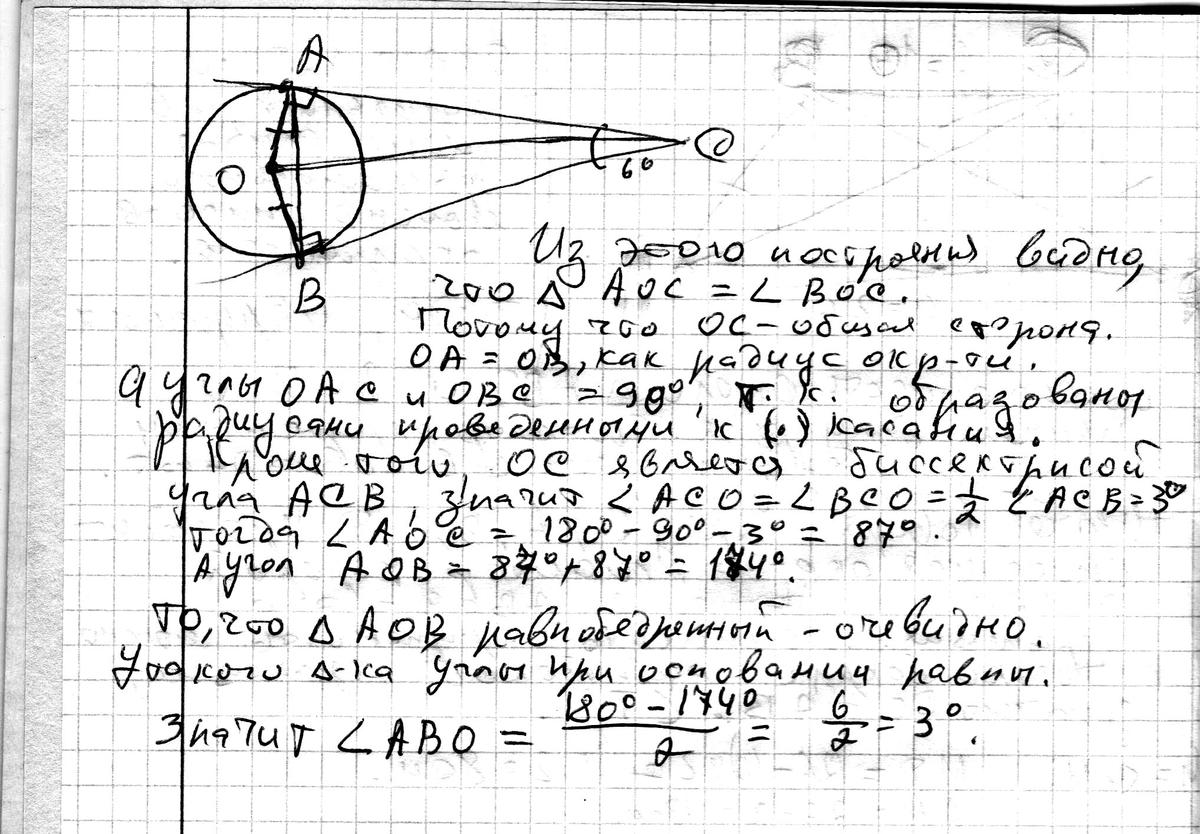 A
O
6°
C
B
Из этого построения видно,
что △ AOC = ∠ BOC.
Потому что OC - общая сторона.
OA = OB, как радиус окр-ти.
а углы OAC и OBC = 90°, т. к. образованы
радиусами проведенными к (·) касания.
Кроме того, OC является биссектрисой
угла ACB, значит ∠ ACO = ∠ BCO = 1/2 ∠ ACB = 3°
тогда ∠ AOC = 180° - 90° - 3° = 87°.
А угол AOB = 87° + 87° = 174°.
То, что △ AOB равнобедренный - очевидно.
У такого △-ка углы при основании равны.
Значит ∠ ABO = (180° - 174°)/2 = 6/2 = 3°.